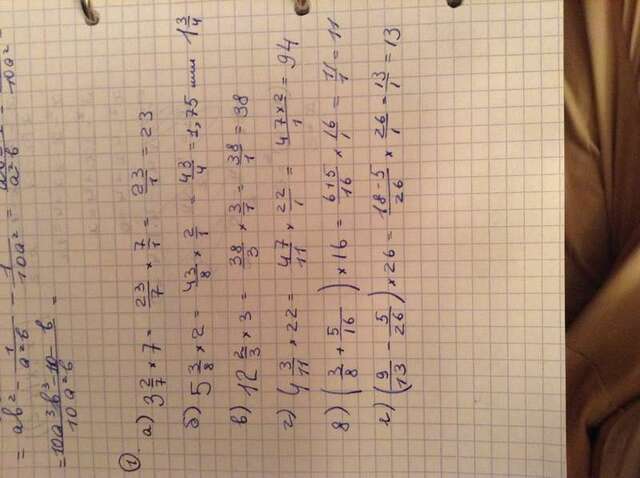 = ab² - 1/a²b - 1/10a² =
= 10a³b³-10-b/10a²b =
① а) 3 2/7 × 7 = 23/7 × 7/1 = 23/1 = 23
б) 5 3/8 × 2 = 43/8 × 2/1 = 43/4 = 1,75 или 1 3/4
в) 12 2/3 × 3 = 38/3 × 3/1 = 38/1 = 38
г) 4 3/11 × 22 = 47/11 × 22/1 = 47×2/1 = 94
д) (3/8 + 5/16) × 16 = 6+5/16 × 16/1 = 11/1 = 11
е) (9/13 - 5/26) × 26 = 18-5/26 × 26/1 = 13/1 = 13